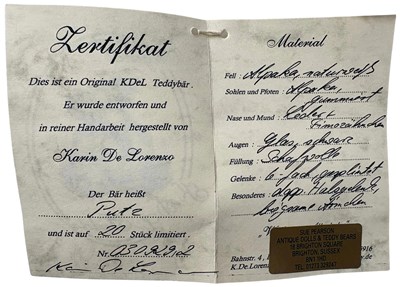 Zertifikat
Dies ist ein Original KDeL Teddybär.
Er wurde entworfen und
in reiner Handarbeit hergestellt von
Karin De Lorenzo
Der Bär heißt
Pute
und ist auf 20 Stück limitiert.
Nr.
Material
Fell: Alpaka, naturweiß
Sohlen und Pfoten: Alpaka,
Nase und Mund: Leder +
Augen: Glas, schwarz
Füllung: Schafwolle
Gelenke: 6 fach gesplintet
Besonderes: dopp. Halsgelenk,
biegsame Ärmchen
SUE PEARSON
ANTIQUE DOLLS & TEDDY BEARS
BRIGHTON SQUARE
BRIGHTON, SUSSEX
Bahnstr. 4,
K.De.Loren